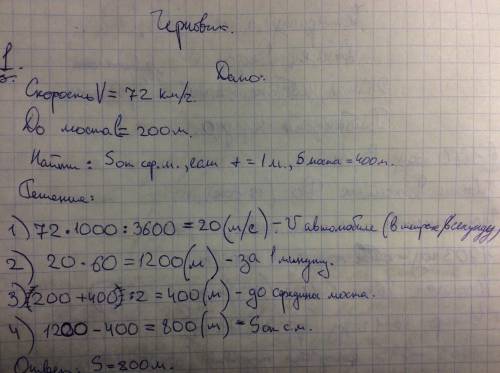 Черновик.
1
Дано:
Скорость V = 72 км/ч.
До моста l = 200 м.
Найти: S от ср. м., если t = 1 м., S моста = 400 м.
Решение:
1) 72·1000:3600 = 20 (м/с) - V автомобиля (в метрах/в секунду)
2) 20·60 = 1200 (м) - за 1 минуту.
3) 200 + 400:2 = 400 (м) - до середины моста.
4) 1200 - 400 = 800 (м) - S от с.м.
Ответ: S = 800 м.